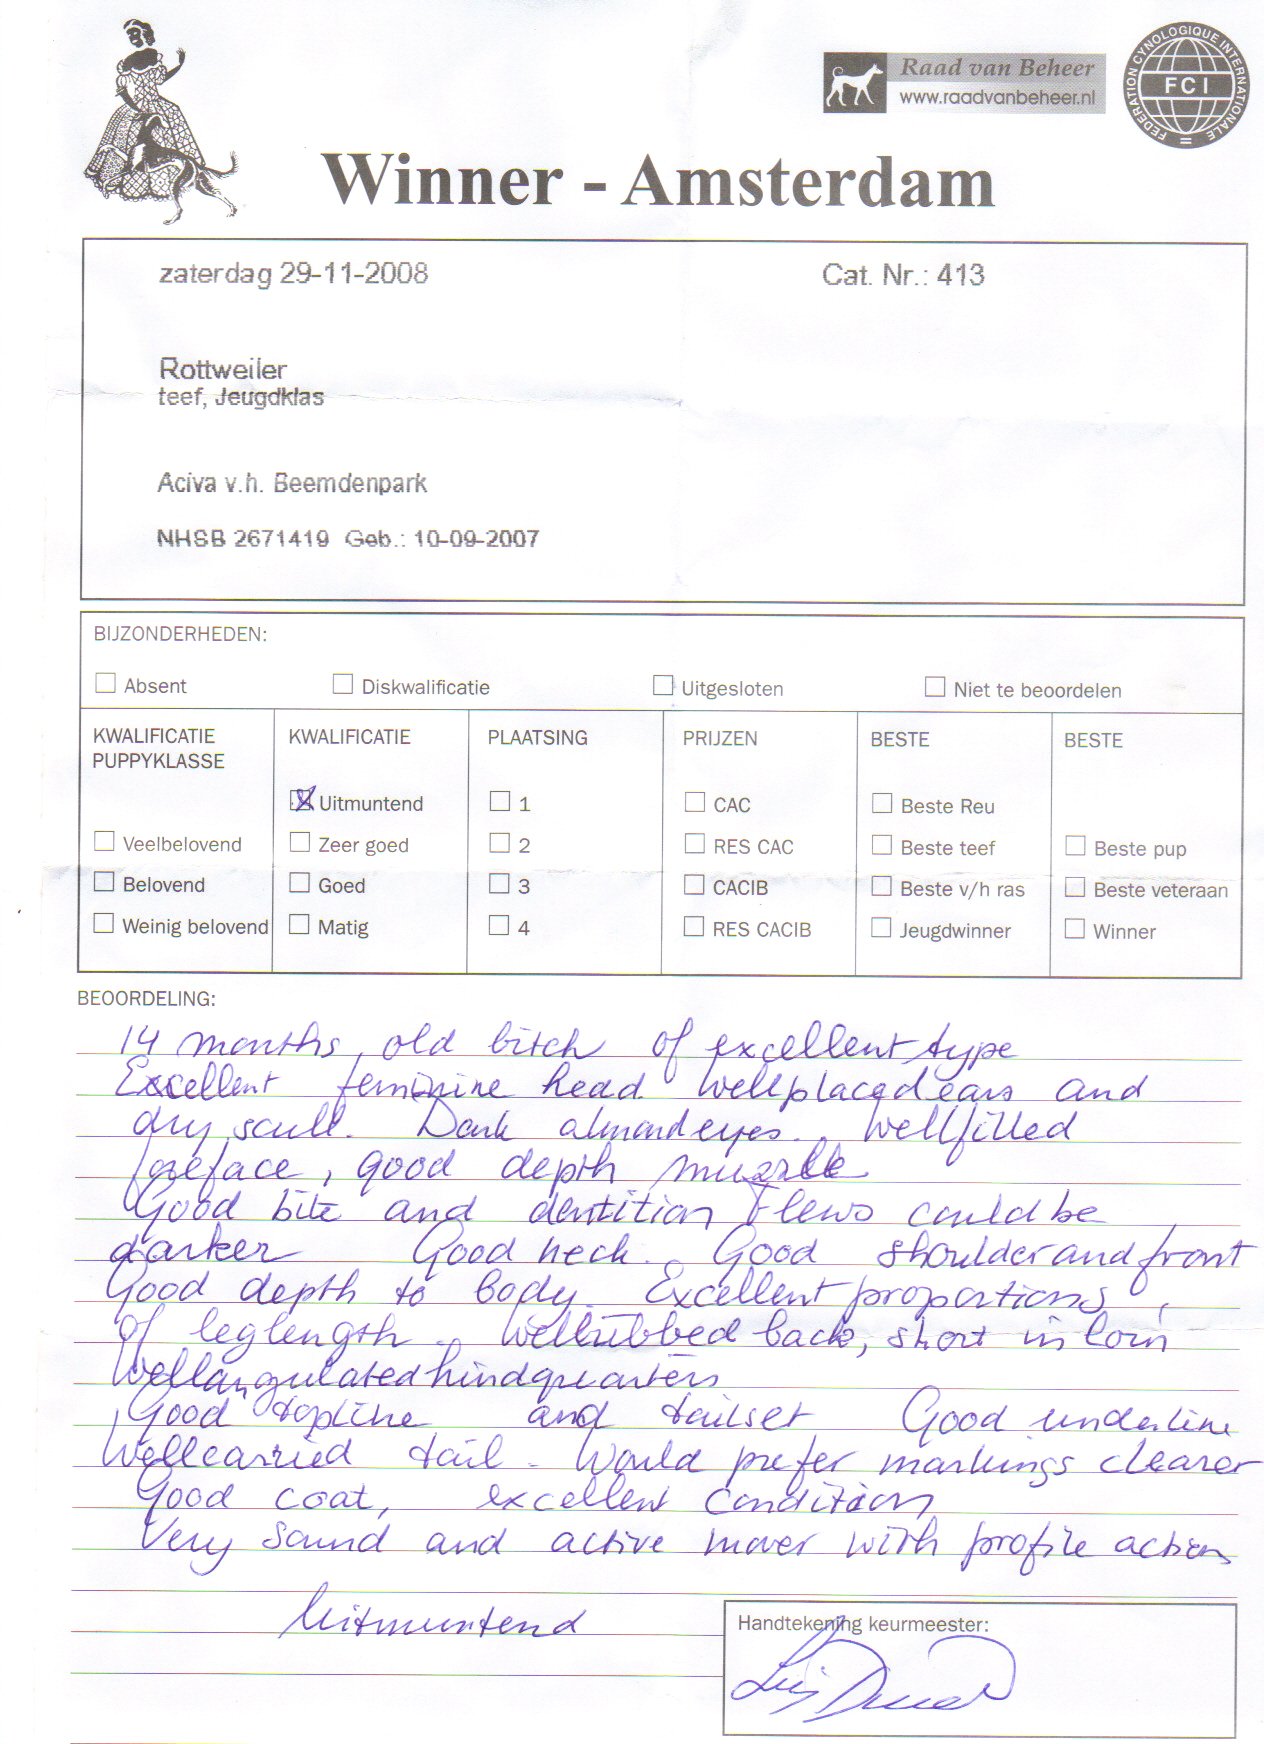 Raad van Beheer
www.raadvanbeheer.nl
FEDERATION CYNOLOGIQUE INTERNATIONALE
FCI
Winner - Amsterdam
zaterdag 29-11-2008 Cat. Nr.: 413
Rottweiler
teef, Jeugdklas
Aciva v.h. Beemdenpark
NHSB 2671419 Geb.: 10-09-2007
BIJZONDERHEDEN:
Absent Diskwalificatie Uitgesloten Niet te beoordelen
KWALIFICATIE KWALIFICATIE PLAATSING PRIJZEN BESTE BESTE
PUPPYKLASSE
Uitmuntend 1 CAC Beste Reu
Veelbelovend Zeer goed 2 RES CAC Beste teef Beste pup
Belovend Goed 3 CACIB Beste v/h ras Beste veteraan
Weinig belovend Matig 4 RES CACIB Jeugdwinner Winner
BEOORDELING:
14 months old bitch of excellent type
Excellent feminine head wellplaced ears and
dry scull. Dark almond eyes. Wellfilled
foreface, good depth muzzle
Good bite and dentition Flews could be
darker Good neck. Good shoulder and front
Good depth to body. Excellent proportions
of leglength. Wellribbed back, short in loin
Wellangulated hindquarters
Good topline and tailset Good underline
Wellcarried tail. Would prefer markings clearer
Good coat, excellent condition
Very sound and active mover with profile action
Uitmuntend
Handtekening keurmeester: